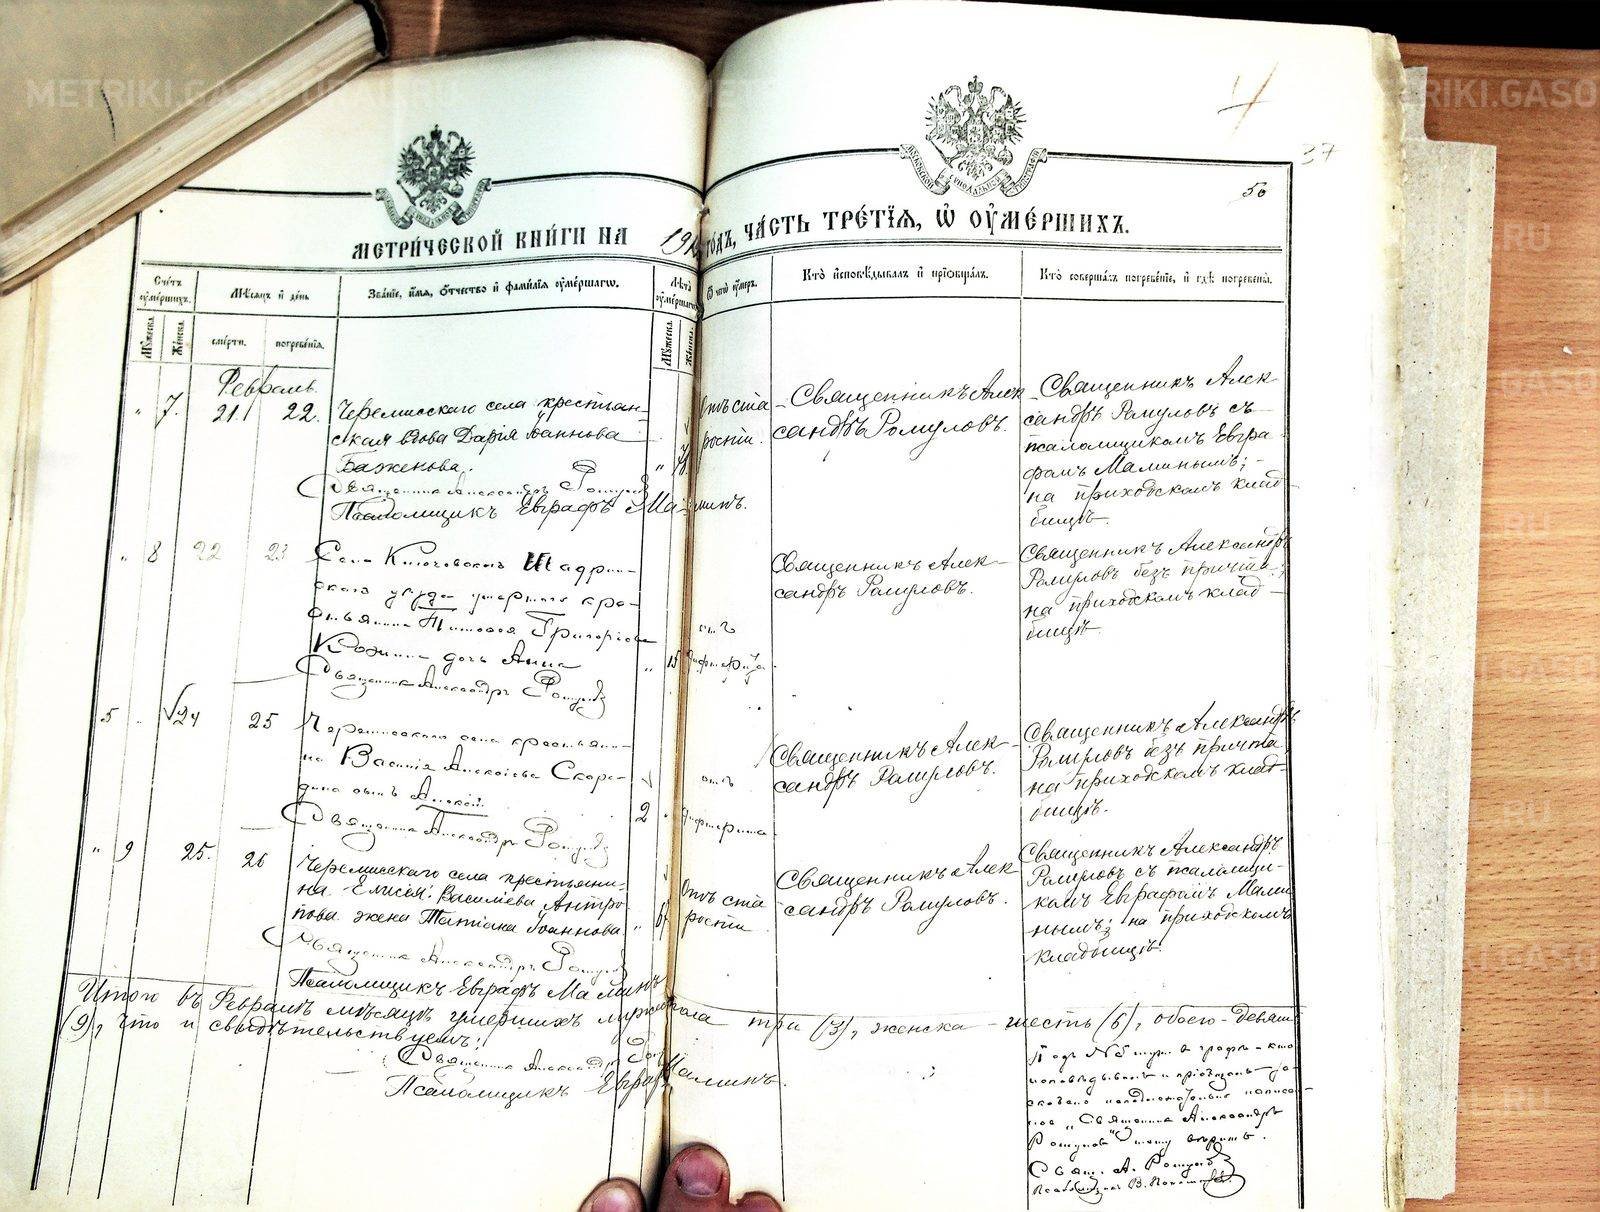 METRIKI.GASO-URAL.RU
37
50
МЕТРИ́ЧЕСКОЙ КНИ́ГИ НА 191 го́дъ, ЧА́СТЬ ТРЕ́ТІЯ, Ѡ҆ ОУ҆МЕ́РШИХЪ.
Сче́тъ оу҆ме́ршихъ.
Мѣ́сяцъ и҆ де́нь
Зва́ніе, и҆́мя, ѻ҆́тчество и҆ фами́лія оу҆ме́ршагѡ.
Лѣ́та оу҆ме́ршагѡ
Ѿ чегѡ̀ оу҆́меръ.
Кто̀ и҆сповѣ́дывалъ и҆ прїѡбща́лъ.
Кто̀ соверша́лъ погребе́ніе, и҆ гдѣ̀ погребены̀.
Мꙋ́жеска.
Же́нска.
сме́рти.
погребе́нія.
Мꙋ́жеска.
Же́нска.
Февраль
" 7. 21. 22.
Черемисскаго села крестьян-
ская вдова Дарія Іоаннова
Баженова.
Священникъ Александръ Ромуловъ
Псаломщикъ Евграфъ Маминъ.
Отъ ста-
рости.
Священникъ Алек-
сандръ Ромуловъ.
Священникъ Алек
сандръ Ромуловъ съ
псаломщикомъ Евгра-
фомъ Маминымъ; -
на приходскомъ клад-
бищѣ.
" 8 22 23
Села Ключевскаго Шадрин-
скаго уѣзда умершаго кре-
стьянина Григоріева
дочь Анна
Священникъ Александръ Ромуловъ
" 15
отъ
дифтерита.
Священникъ Алек-
сандръ Ромуловъ.
Священникъ Александръ
Ромуловъ безъ причта;
на приходскомъ клад-
бищѣ.
5 " 24 25
Черемисскаго села крестьяни-
на Василія Алексіева Скоре-
дина сынъ Алексій.
Священникъ Александръ Ромуловъ
2 "
отъ
дифтерита.
Священникъ Алек-
сандръ Ромуловъ.
Священникъ Александръ
Ромуловъ безъ причта
на приходскомъ клад-
бищѣ.
" 9 25. 26
Черемисскаго села крестьяни-
на Елисея Василіева Антро-
пова жена Татіана Іоаннова.
Священникъ Александръ Ромуловъ
Псаломщикъ Евграфъ Маминъ
Отъ ста
рости
Священникъ Алек
сандръ Ромуловъ.
Священникъ Александръ
Ромуловъ съ псаломщи-
комъ Евграфомъ Мами-
нымъ; на приходскомъ
кладбищѣ.
Итого въ Февралѣ мѣсяцѣ умершихъ мужеска пола три (3), женска - шесть (6), обоего - девять
(9), что и свидѣтельствуемъ:
Священникъ Александръ Ром
Псаломщикъ Евграфъ Маминъ.
Подъ № 5 въ графѣ - кто
исповѣдывалъ и пріобщалъ -
написан-
ное "Священникъ Александръ
Ромуловъ" вѣрить.
Свящ. А. Ромуловъ
Псаломщикъ В.